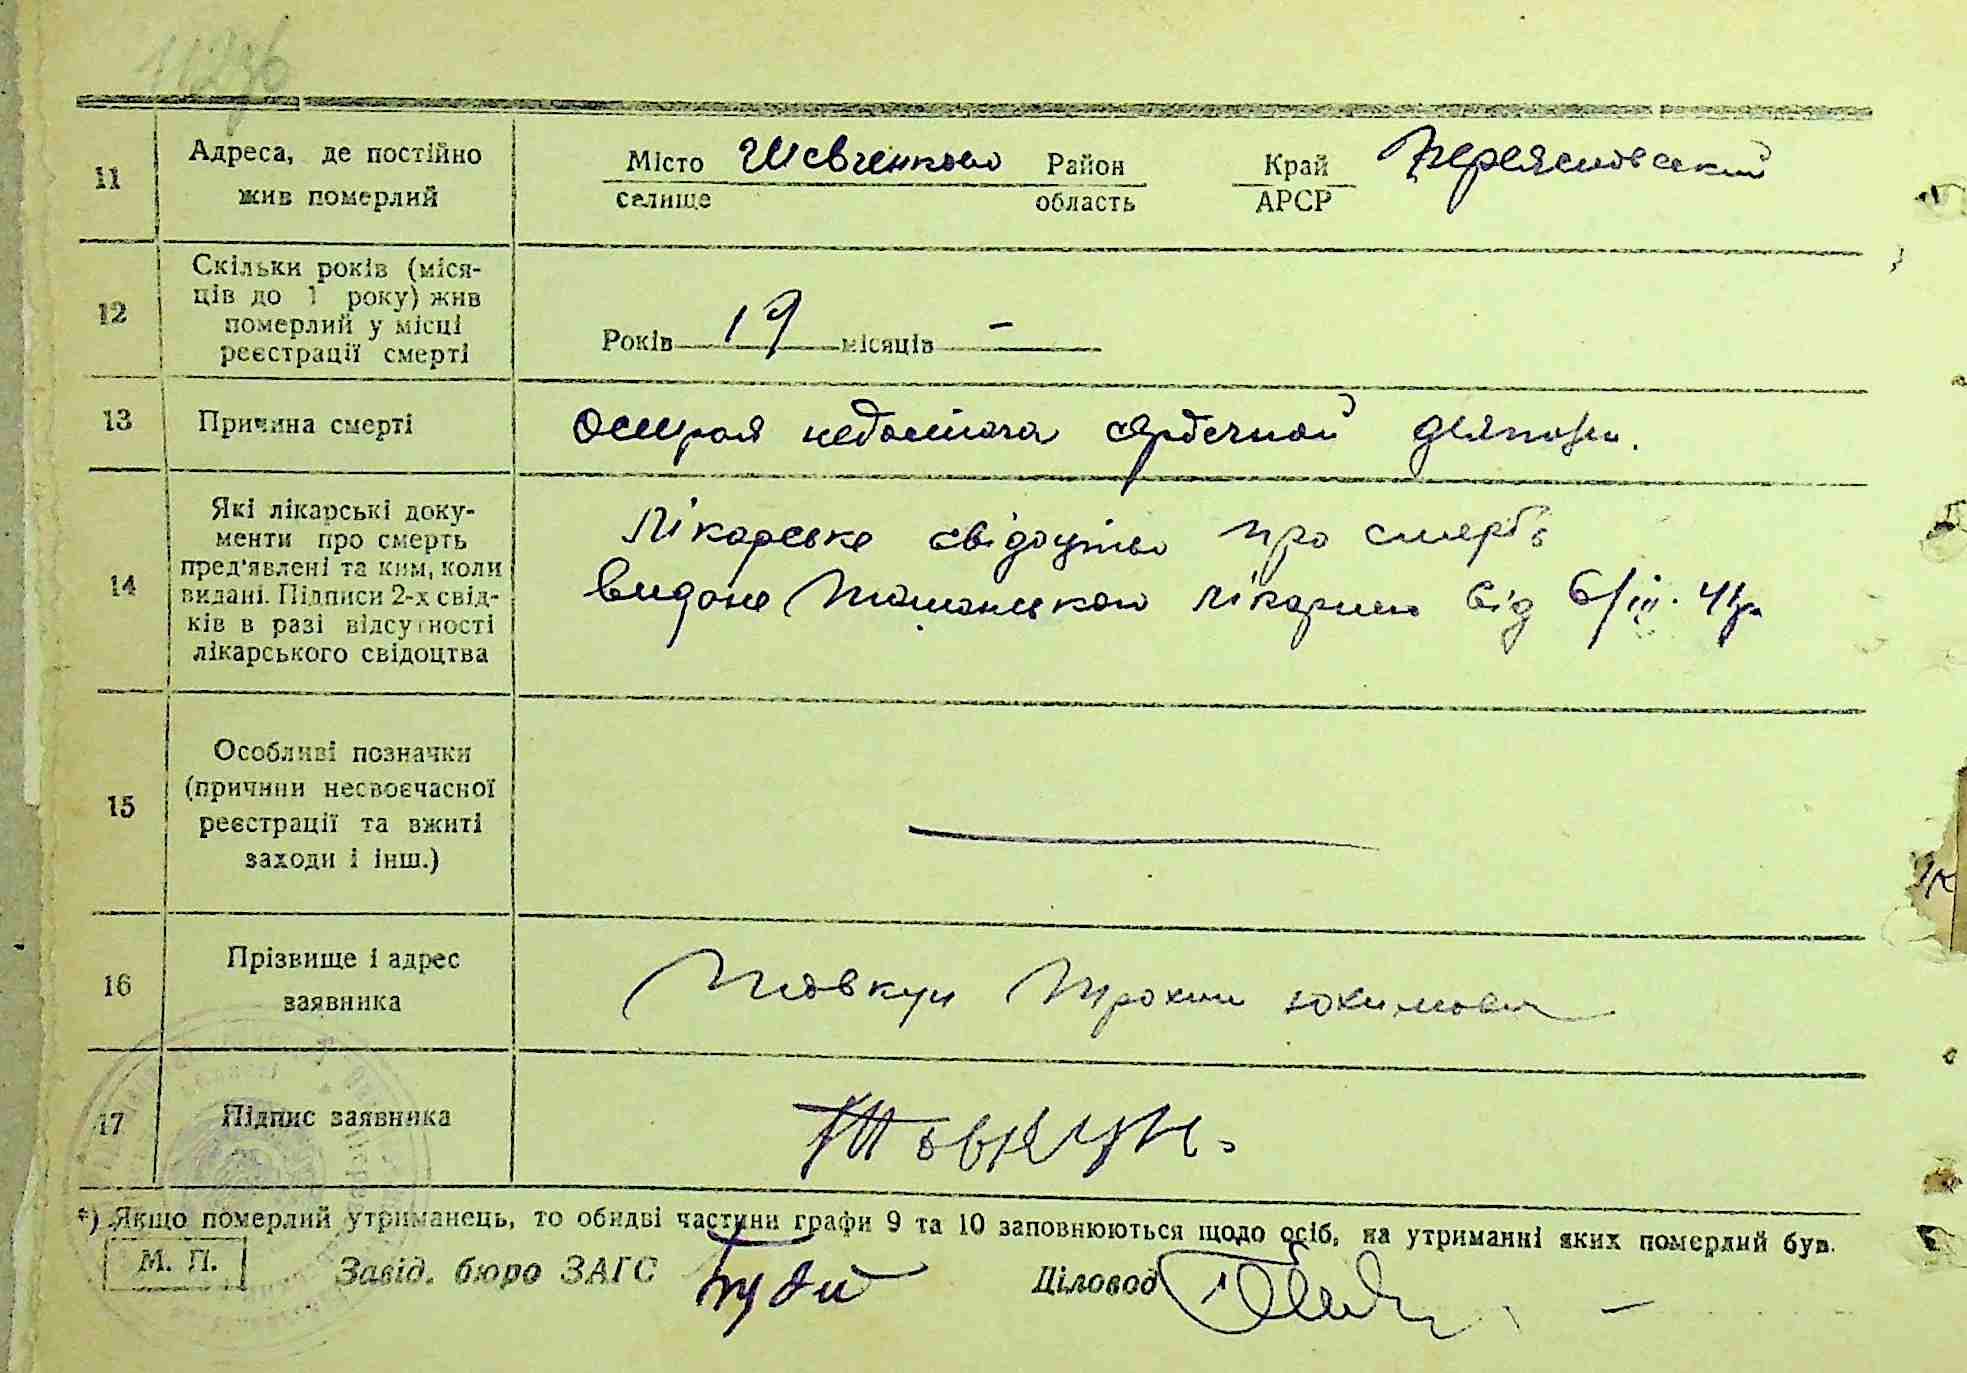 11
Адреса, де постійно
жив померлий
Місто Шевченково Район Край Переяславський
селище область АРСР
12
Скільки років (міся-
ців до 1 року) жив
померлий у місці
реєстрації смерті
Років 19 місяців —
13
Причина смерті
Острая недостача сердечной
14
Які лікарські доку-
менти про смерть
пред'явлені та ким, коли
видані. Підписи 2-х свід-
ків в разі відсутності
лікарського свідоцтва
Лікарське свідоцтво про смерть
видане лікарнею від 6/III. 41р
15
Особливі позначки
(причини несвоєчасної
реєстрації та вжиті
заходи і інш.)
16
Прізвище і адрес
заявника
Товкун Трохим Юхимович
17
Підпис заявника
Товкун.
*) Якщо померлий утриманець, то обидві частини графи 9 та 10 заповнюються щодо осіб, на утриманні яких померлий був.
М. П. Завід. бюро ЗАГС Діловод